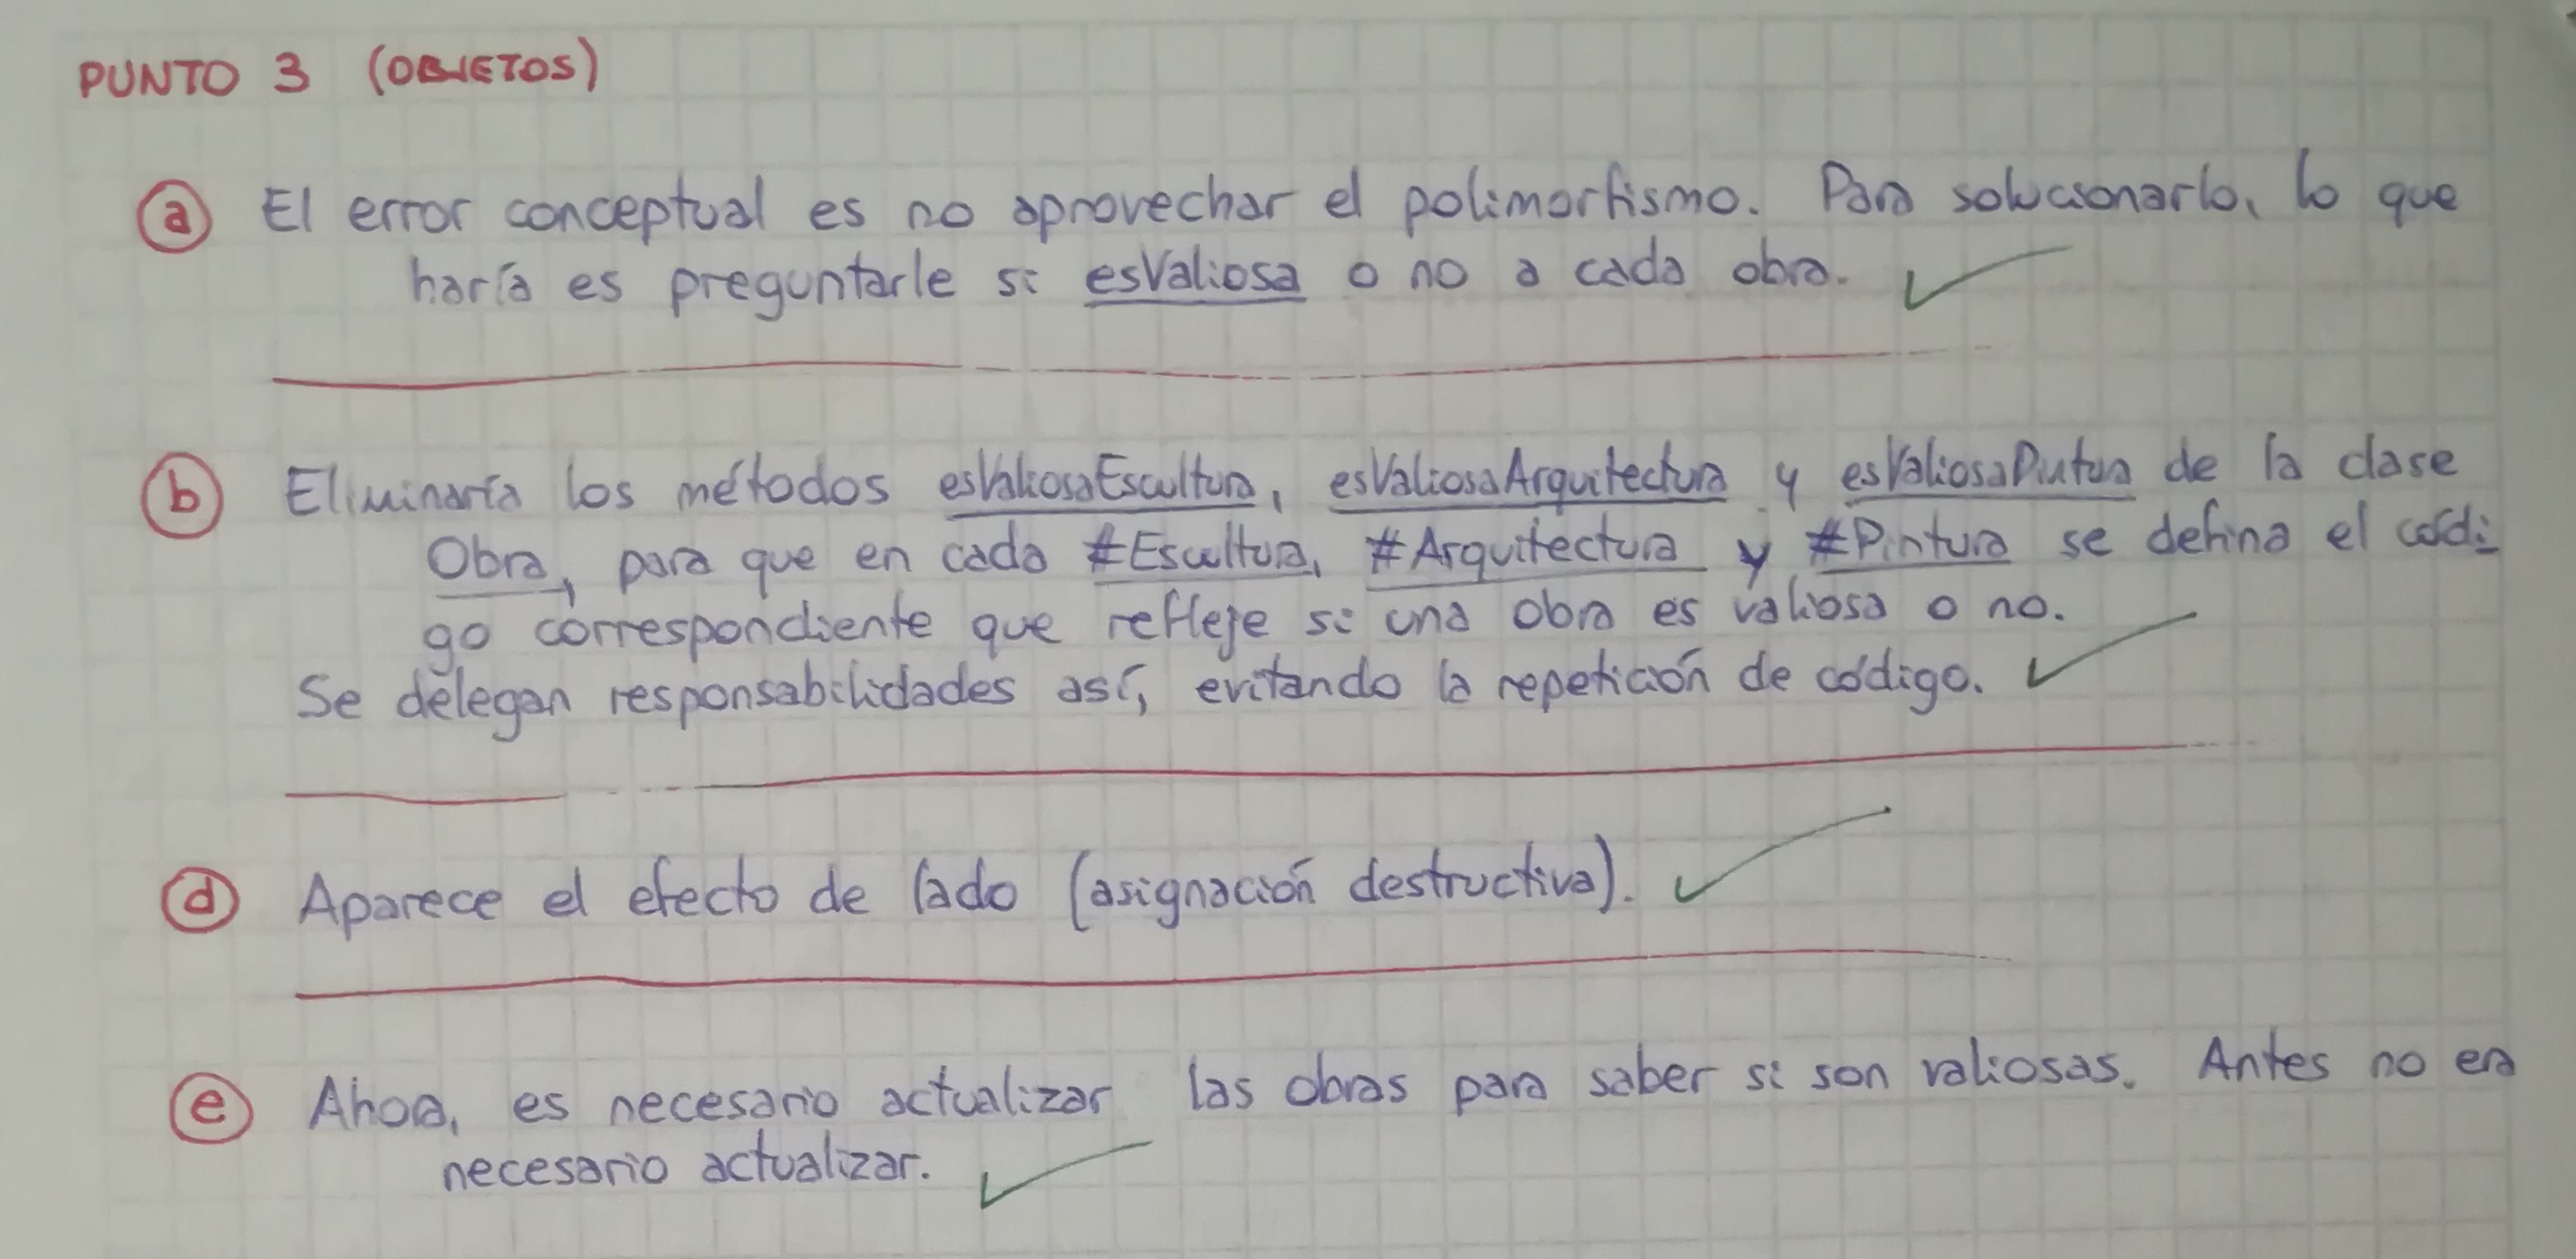 PUNTO 3 (OBJETOS)
a El error conceptual es no aprovechar el polimorfismo. Para solucionarlo, lo que
haría es preguntarle si esValiosa o no a cada obra.
b Eliminaría los métodos esValiosaEscultura, esValiosaArquitectura y esValiosaPintura de la clase
Obra, para que en cada #Escultura, #Arquitectura y #Pintura se defina el códi-
go correspondiente que refleje si una obra es valiosa o no.
Se delegan responsabilidades así, evitando la repetición de código.
d Aparece el efecto de lado (asignación destructiva).
e Ahora, es necesario actualizar las obras para saber si son valiosas. Antes no era
necesario actualizar.